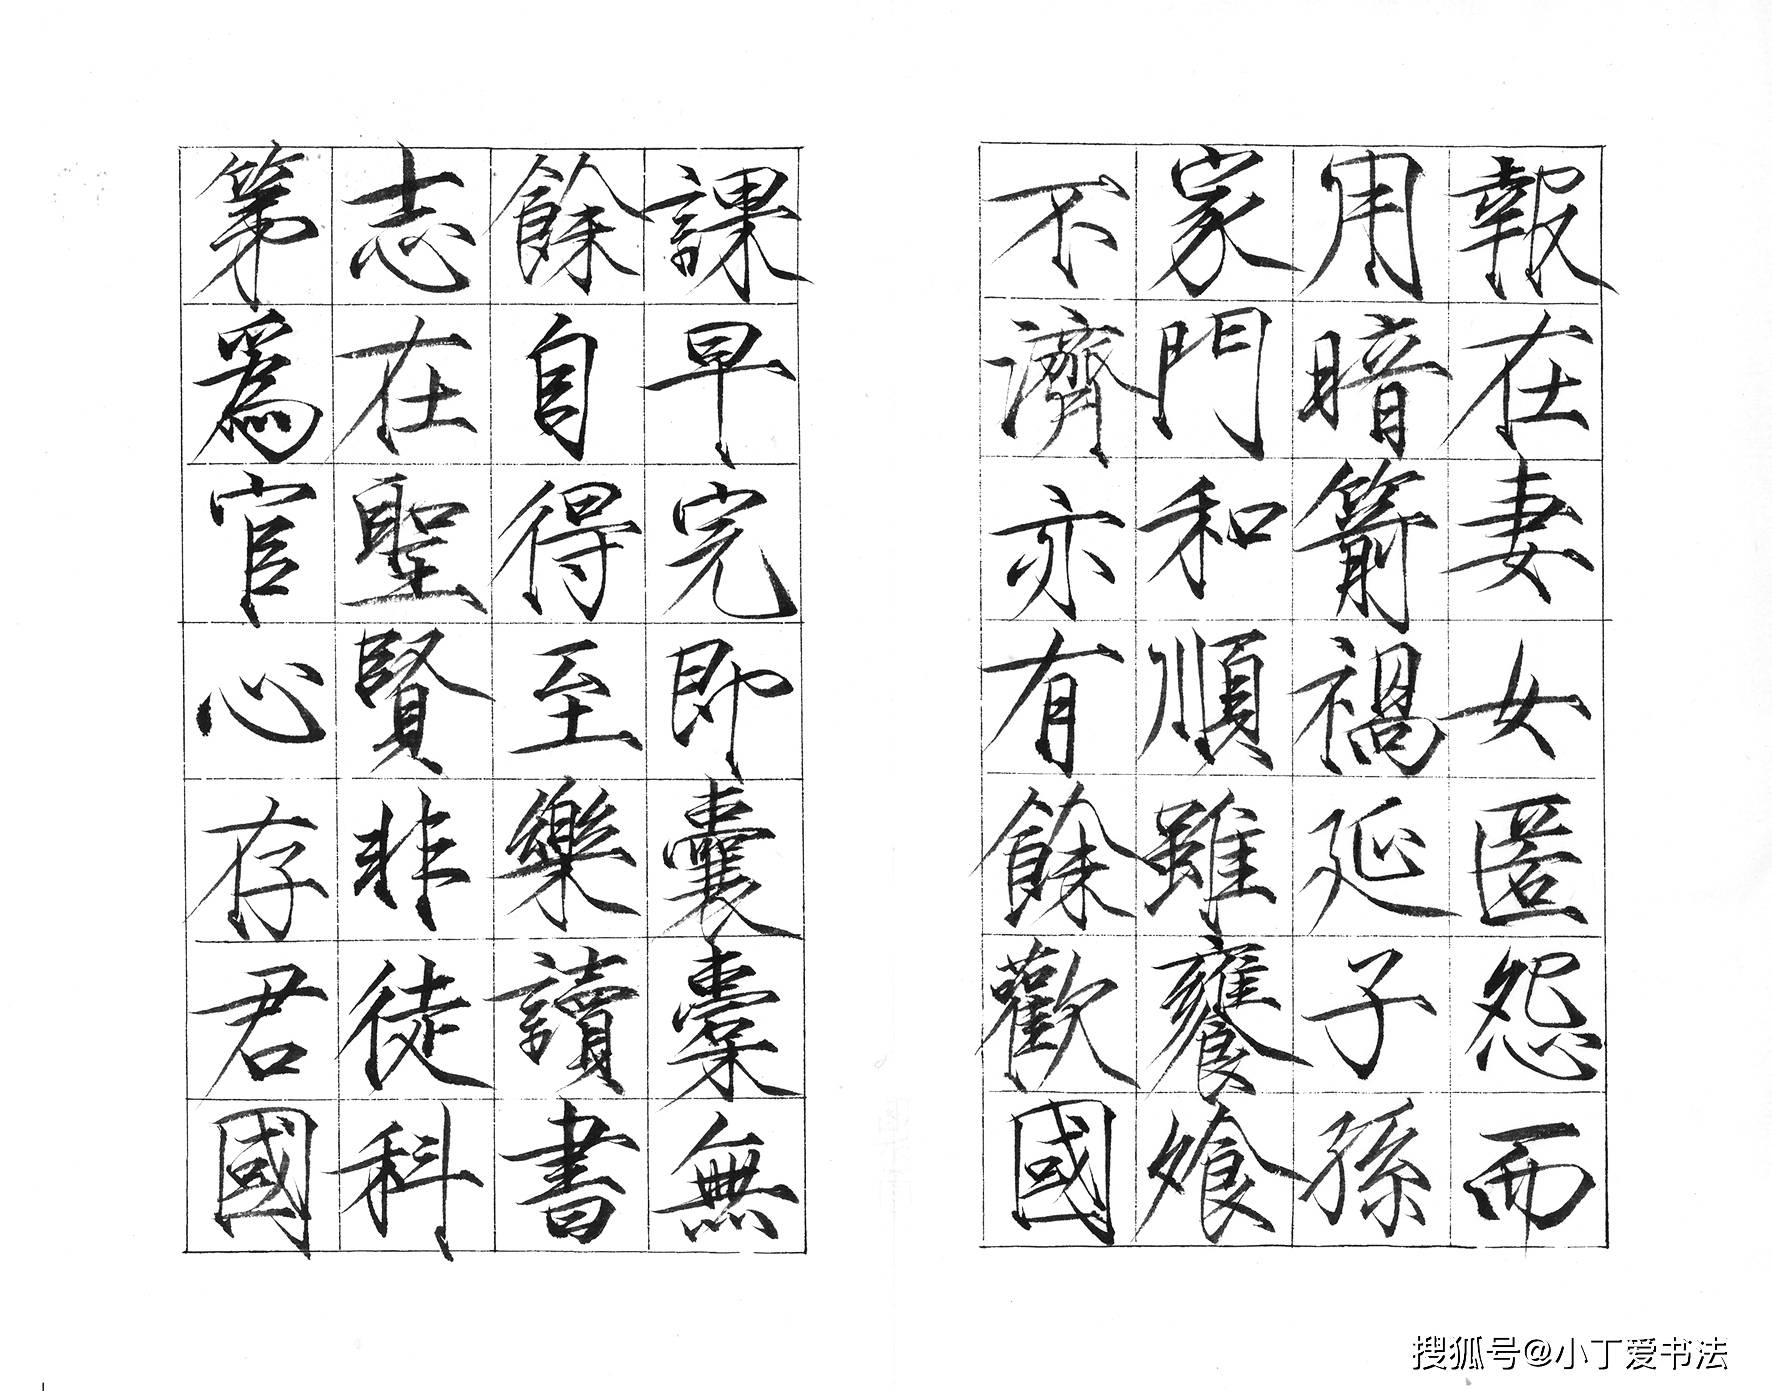 報在妻女匿怨而
用暗箭禍延子孫
家門和順雖饔飧
不濟亦有餘歡國
課早完即囊橐無
餘自得至樂讀書
志在聖賢非徒科
第爲官心存君國
搜狐号@小丁爱书法